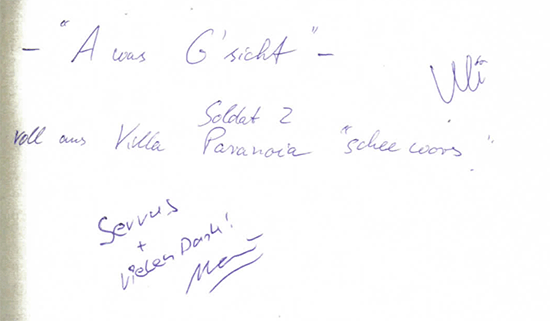 - "A was G'sicht" -
Uli
Soldat 2
voll aus Villa Paranoia "schee woors"
Servus
+
vielen Dank!